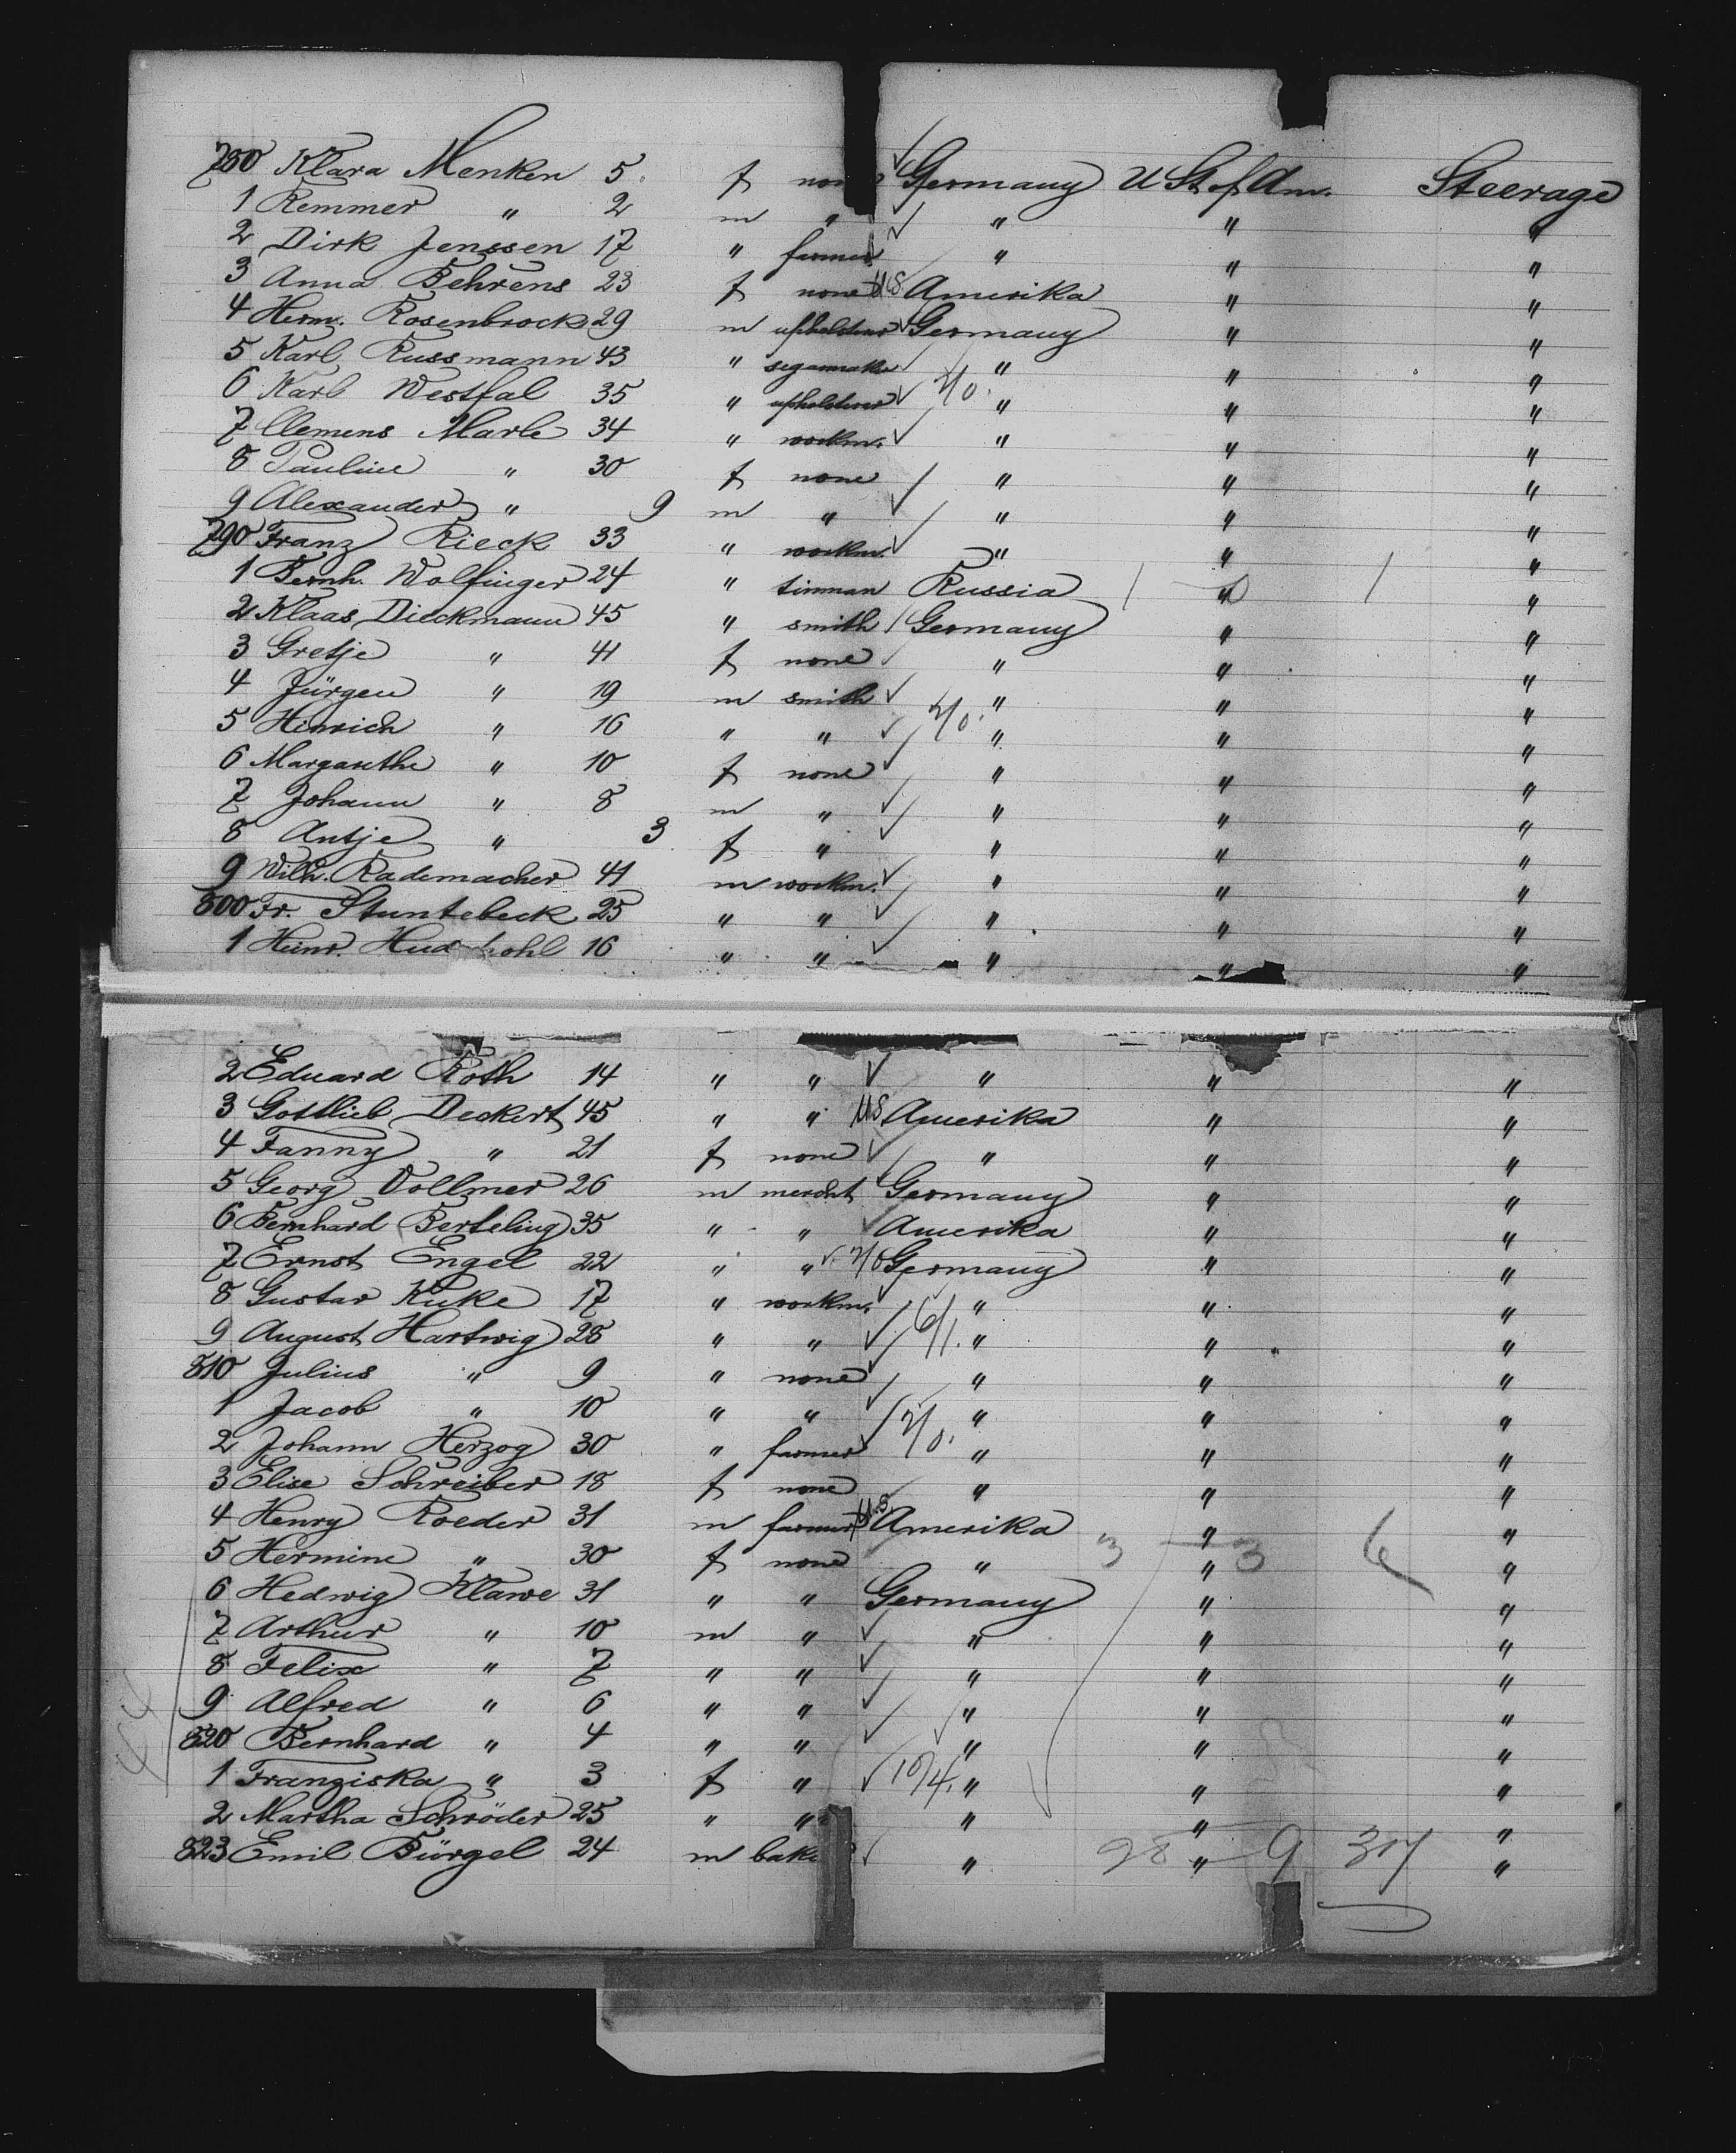 780 Klara Menken 5 f none Germany U St of Am. Steerage
1 Remmer " 2 m " " " "
2 Dirk Janssen 17 " farmer " " "
3 Anna Behrens 23 f none US Amerika " "
4 Herm. Rosenbrock 29 m upholsterer Germany " "
5 Karl Russmann 43 " segarmaker " " "
6 Karl Westfal 35 " upholsterer 2/0. " " "
7 Clemens Marle 34 " workm. " " "
8 Pauline " 30 f none " " "
9 Alexander " 9 m " " " "
790 Franz Rieck 33 " workm. " " "
1 Bernh. Wolfinger 24 " tinman Russia 1 " 1 "
2 Klaas Dieckmann 45 " smith Germany " "
3 Gretje " 41 f none " " "
4 Jürgen " 19 m smith " " "
5 Hinrich " 16 " " 2/0. " " "
6 Margarethe " 10 f none " " "
7 Johann " 8 m " " " "
8 Antje " 3 f " " " "
9 Wilh. Rademacher 41 m workm. " " "
800 Fr. Stuntebeck 25 " " " " "
1 Heinr. 16 " " " " "
2 Eduard Roth 14 " " " " "
3 Gottlieb Deckert 45 " " US Amerika " "
4 Fanny " 21 f none " " "
5 Georg Vollmer 26 m mercht Germany " "
6 Bernhard Berteling 35 " " Amerika " "
7 Ernst Engel 22 " " 2/0 Germany " "
8 Gustav Kuke 17 " workm. " " "
9 August Hartwig 28 " " 6/1. " " "
810 Julius " 9 " none " " "
1 Jacob " 10 " " " " "
2 Johann Herzog 30 " farmer 2/0. " " "
3 Elise Schreiber 18 f none " " "
4 Henry Roeder 31 m farmer U.S. Amerika " "
5 Hermine " 30 f none " 3 " 3 6 "
6 Hedwig Klawe 31 " " Germany " "
7 Arthur " 10 m " " " "
8 Felix " 7 " " " " "
9 Alfred " 6 " " " " "
820 Bernhard " 4 " " " " "
1 Franziska " 3 f " 10/4. " " "
2 Martha Schröder 25 " " " " "
823 Emil Bürgel 24 m " 28 " 9 37 "